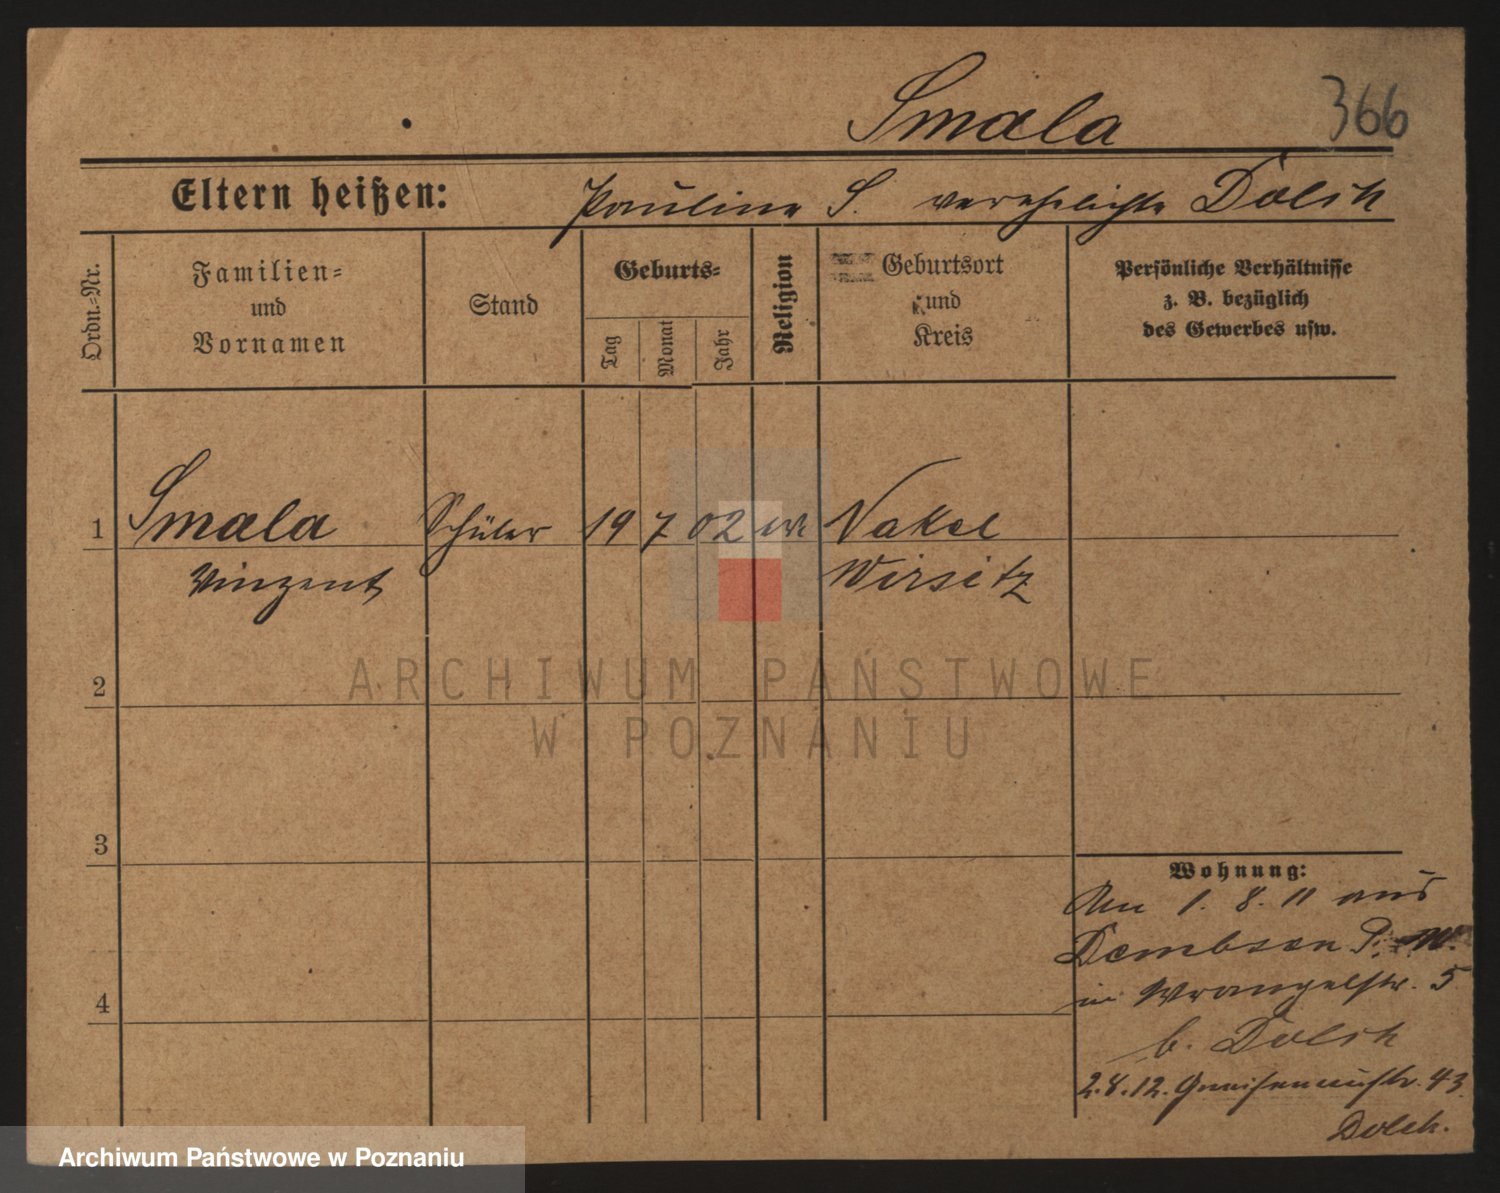 Smala
366
Eltern heißen: Pauline S. verehelichte Dolsk
Ordn.=Nr.
Familien=
und
Vornamen
Stand
Geburts=
Tag
Monat
Jahr
Religion
Geburtsort
und
Kreis
Persönliche Verhältnisse
z. B. bezüglich
des Gewerbes usw.
1 Smala Schüler 19 7 02 Nakel
Vinzent Wirsitz
ARCHIWUM PAŃSTWOWE
W POZNANIU
2
3
4
Wohnung:
Am 1. 8. 11 aus
Dembsen P. W.
in Wrangelstr. 5
b. Dolsk
2.8.12. Gneisenaustr. 43
Dolsk.
Archiwum Państwowe w Poznaniu